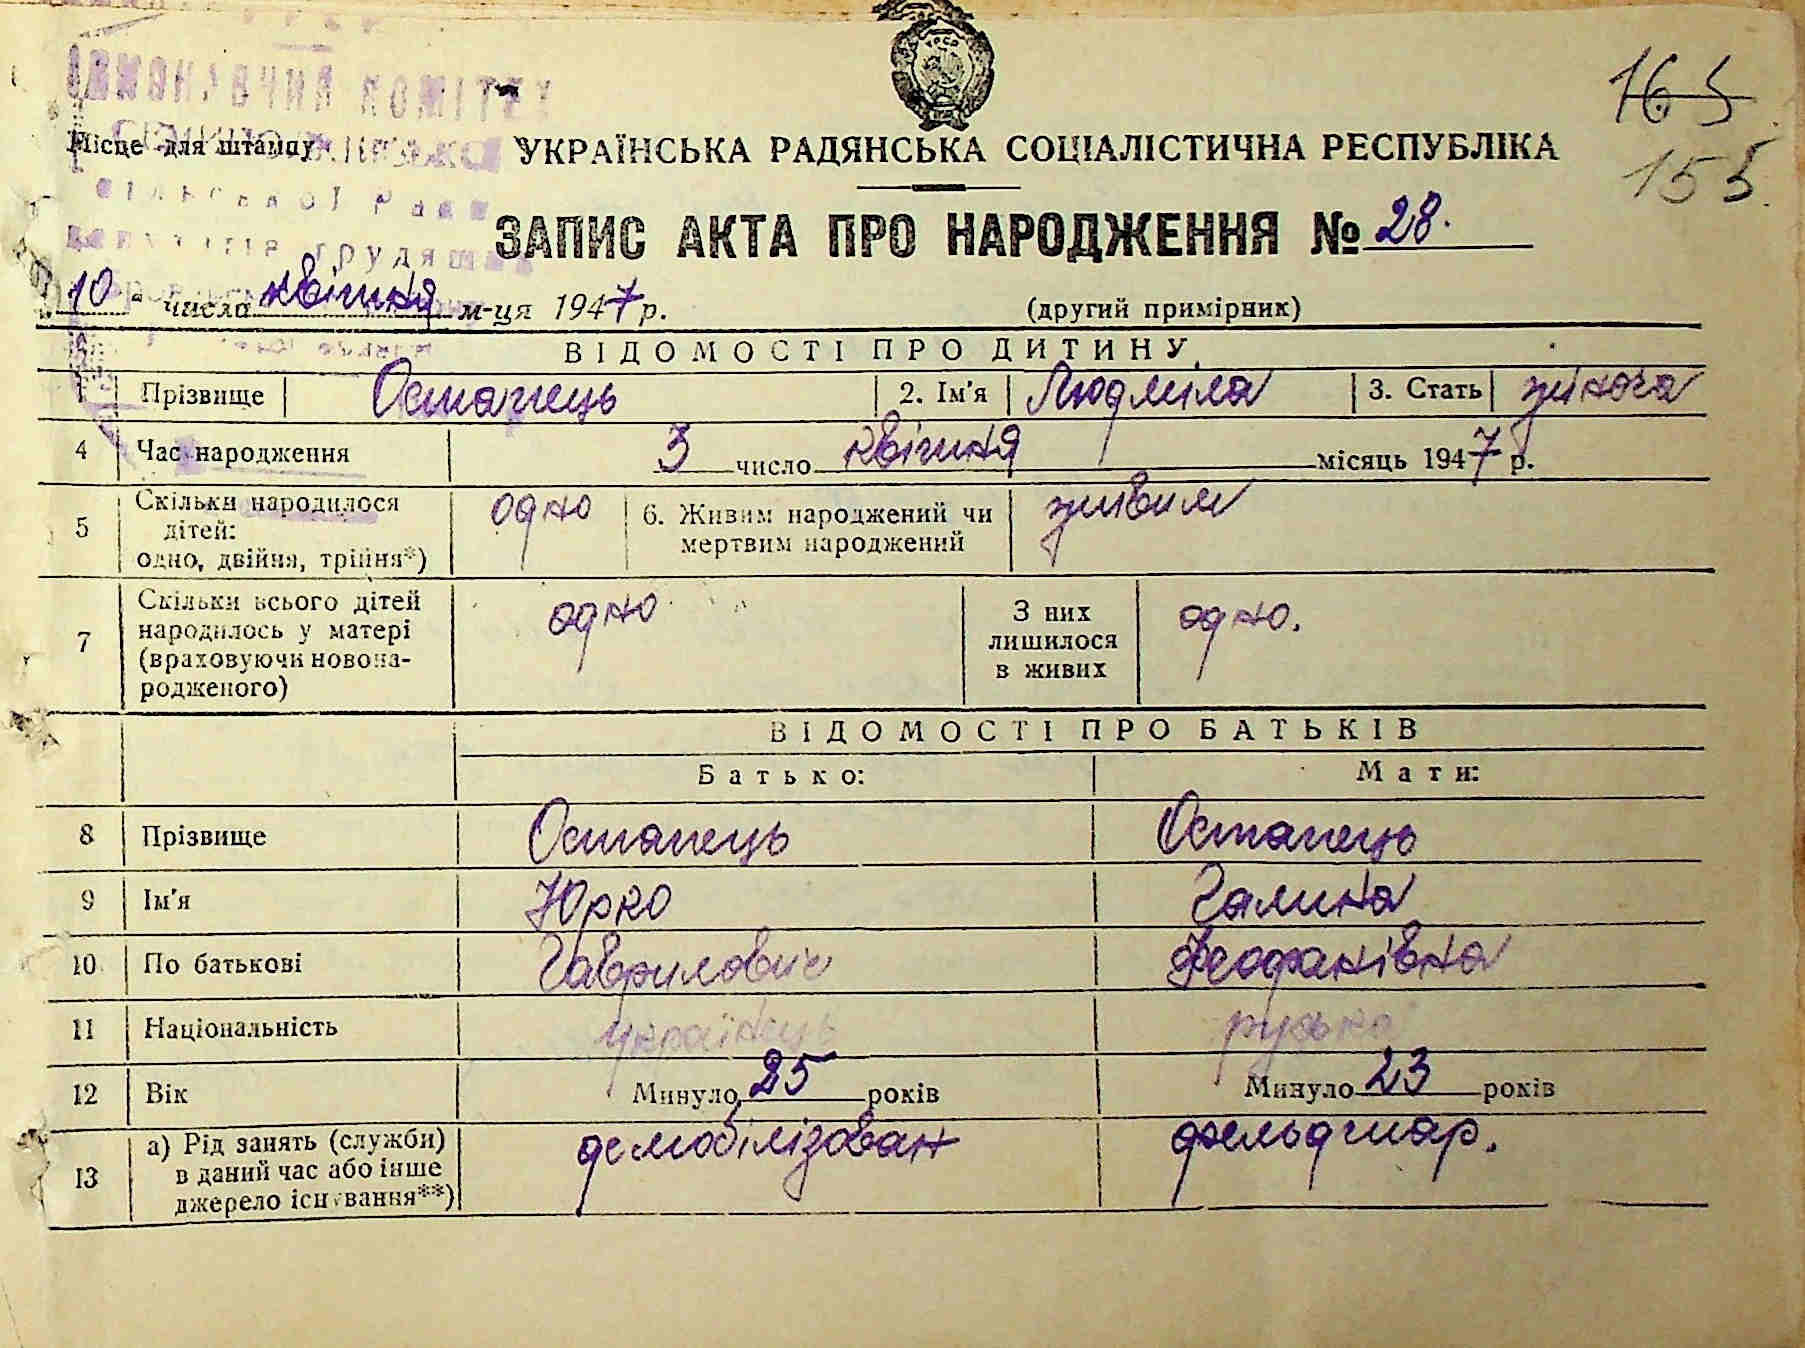 УРСР
165
155
Місце для штампу
УКРАЇНСЬКА РАДЯНСЬКА СОЦІАЛІСТИЧНА РЕСПУБЛІКА
ЗАПИС АКТА ПРО НАРОДЖЕННЯ № 28.
10 числа квітня м-ця 1947 р.
(другий примірник)
ВІДОМОСТІ ПРО ДИТИНУ
1 Прізвище Остапець 2. Ім'я Людміла 3. Стать жіноча
4 Час народження 3 число квітня місяць 1947 р.
5 Скільки народилося дітей: одно, двійня, трійня*) одно 6. Живим народжений чи мертвим народжений живим
7 Скільки всього дітей народилось у матері (враховуючи новонародженого) одно З них лишилося в живих одно.
ВІДОМОСТІ ПРО БАТЬКІВ
Батько: Мати:
8 Прізвище Остапець Остапець
9 Ім'я Юрко Галина
10 По батькові Гаврилович Феофанівна
11 Національність українець руська
12 Вік Минуло 25 років Минуло 23 років
13 а) Рід занять (служби) в даний час або інше джерело існування**) демобілізован фельдшар.